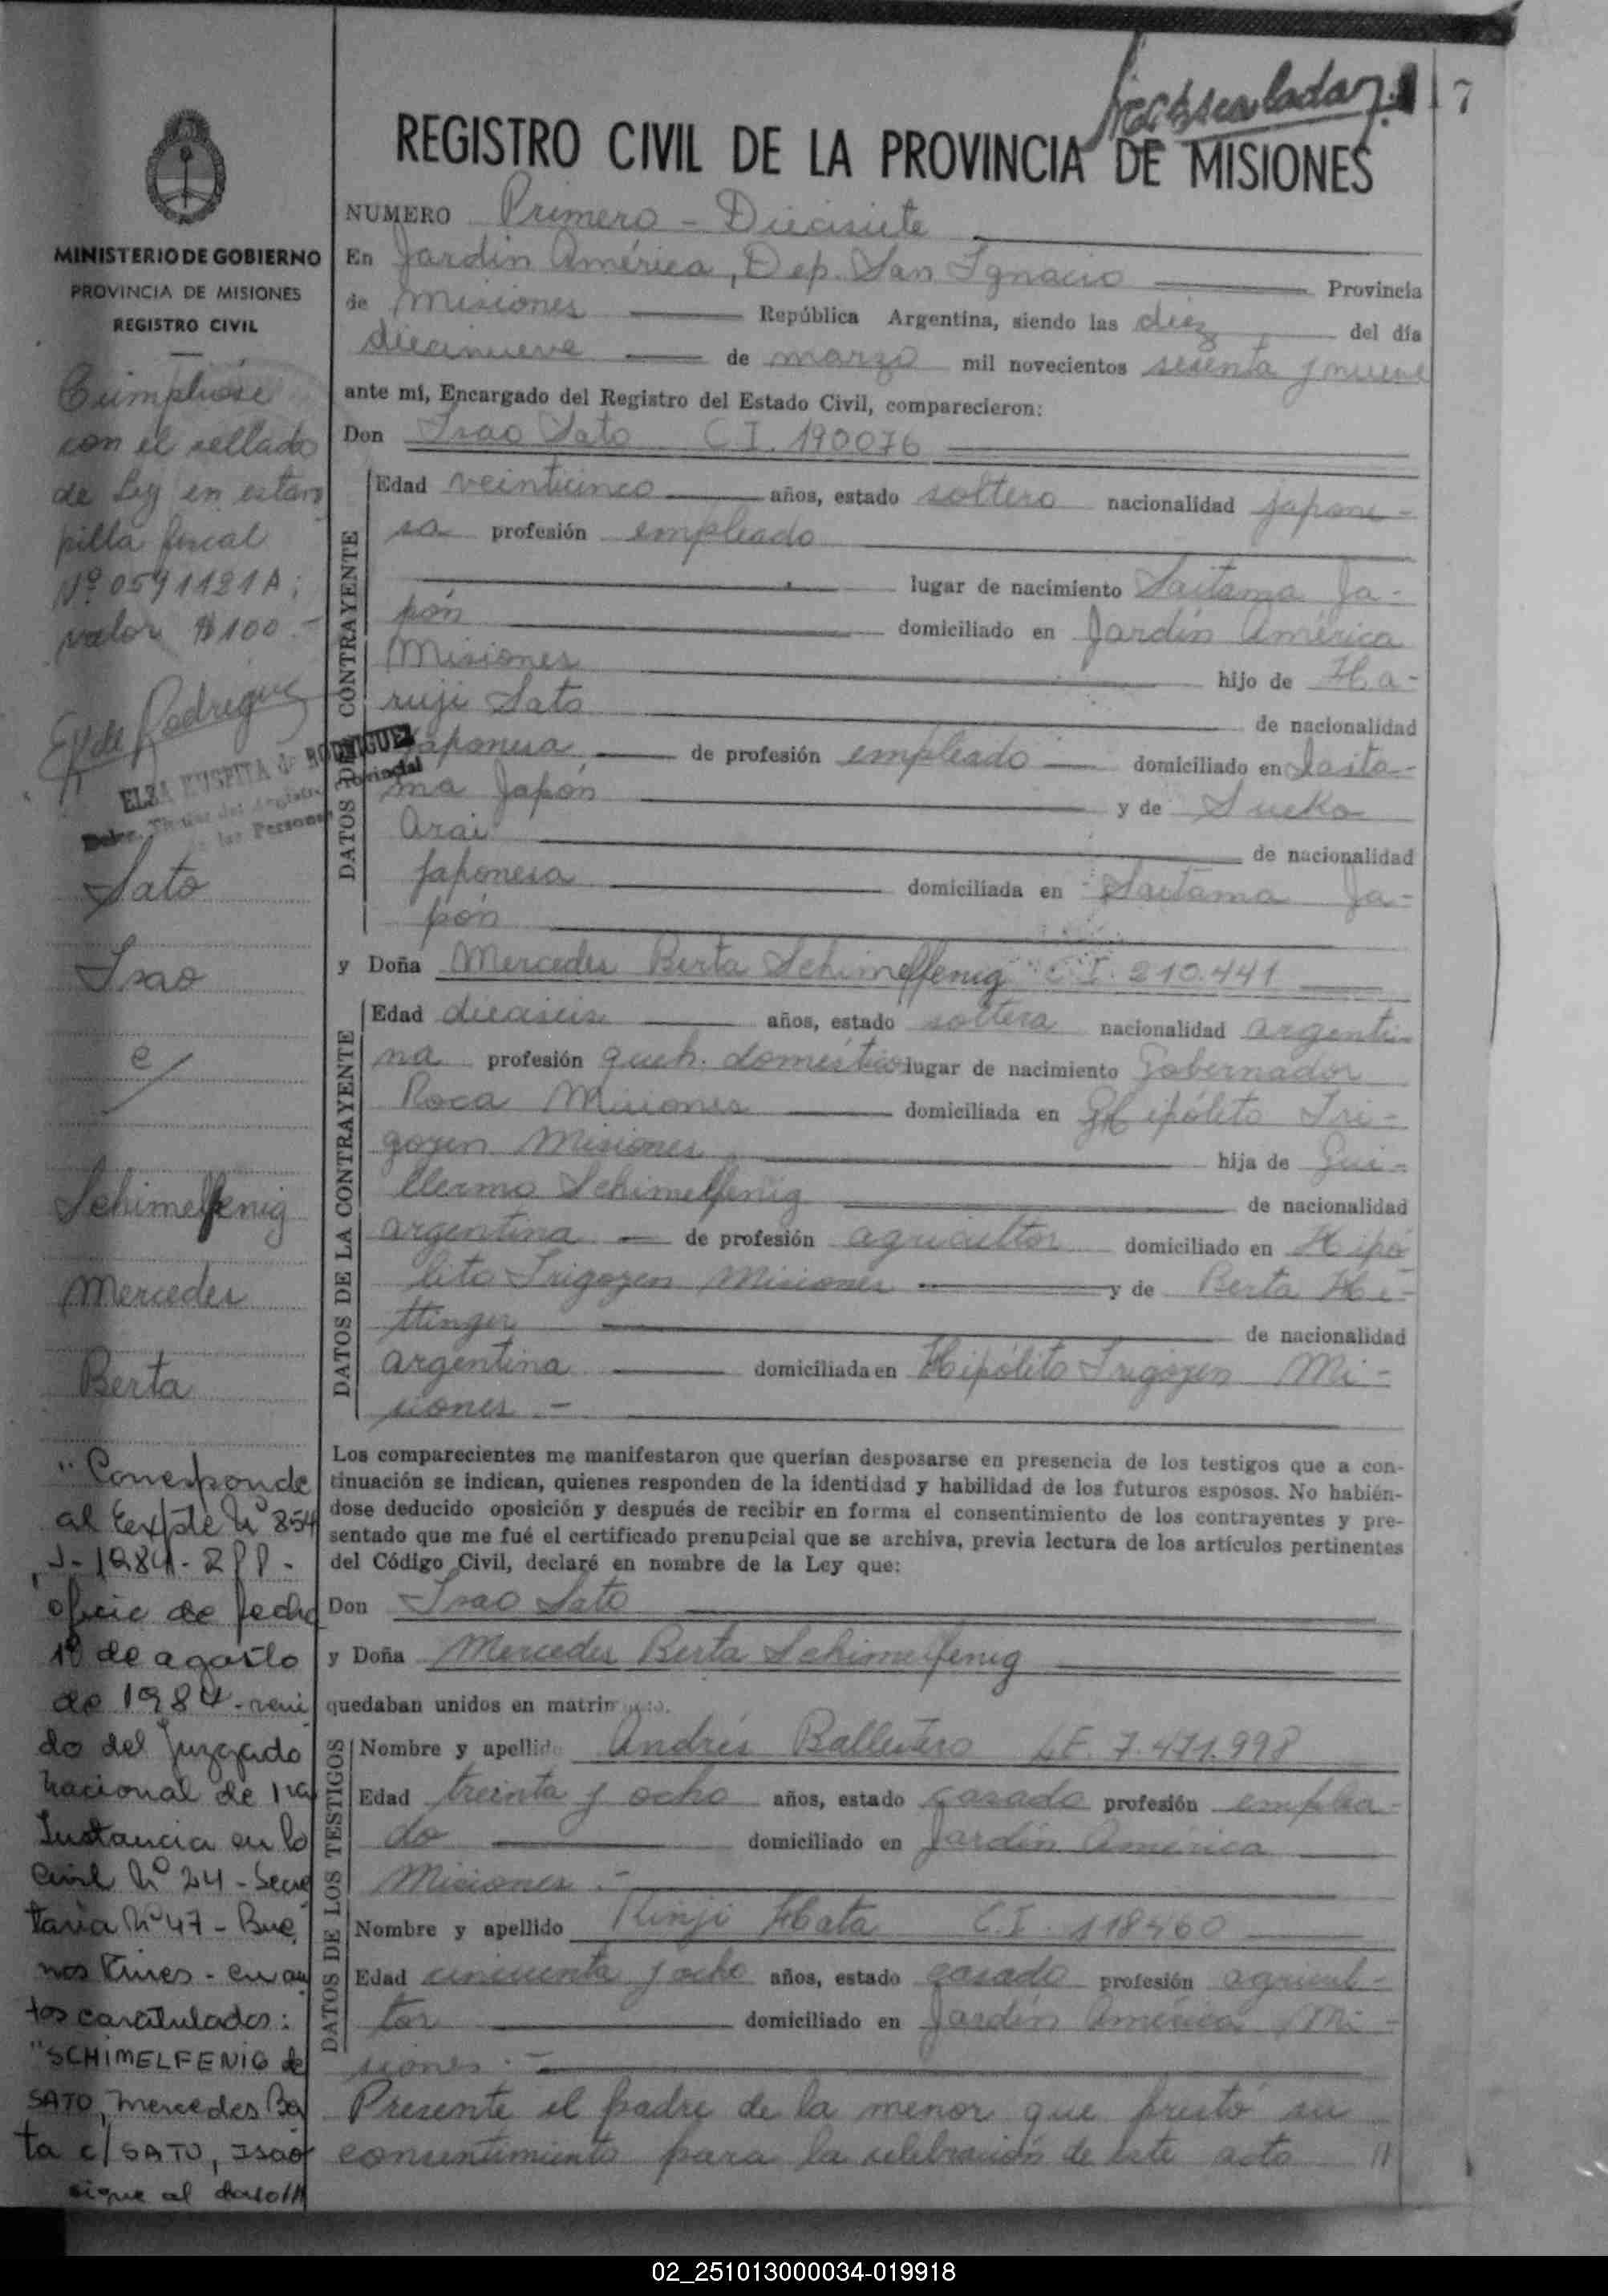 17
REGISTRO CIVIL DE LA PROVINCIA DE MISIONES
MINISTERIO DE GOBIERNO
PROVINCIA DE MISIONES
REGISTRO CIVIL
Cumplióse
con el sellado
de Ley en estam
pilla fiscal
Nº 0591121A;
valor $100.-
E H de Rodriguez
ELSA de RODRIGUEZ
Provincial
de las Personas
Sato
Isao
c/
Schimelfenig
Mercedes
Berta
"Corresponde
al Expte Nº 854
J-1984-
oficio de fecha
1º de agosto
de 1984-
do del Juzgado
Nacional de 1ra
Instancia en lo
Civil Nº 24-Secre
taria Nº 47-Bue
nos Aires-en au
tos caratulados:
"SCHIMELFENIG de
SATO, Mercedes Ber
ta c/ SATO, Isao
sigue al dorso///
NUMERO Primero - Diecisiete
En Jardín América, Dep. San Ignacio Provincia
de Misiones República Argentina, siendo las diez del día
diecinueve de marzo mil novecientos sesenta y nueve
ante mi, Encargado del Registro del Estado Civil, comparecieron:
Don Isao Sato C.I. 190076
DATOS DEL CONTRAYENTE
Edad veinticinco años, estado soltero nacionalidad japone-
sa profesión empleado
lugar de nacimiento Saitama Ja-
pón domiciliado en Jardín América
Misiones hijo de Ha-
ruji Sato de nacionalidad
japonesa de profesión empleado domiciliado en Saita-
ma Japón y de Sueko
Arai de nacionalidad
japonesa domiciliada en Saitama Ja-
pón
y Doña Mercedes Berta Schimelfenig C.I. 210.441
DATOS DE LA CONTRAYENTE
Edad dieciseis años, estado soltera nacionalidad argenti-
na profesión queh. domestico lugar de nacimiento Gobernador
Roca Misiones domiciliada en Hipólito Iri-
goyen Misiones hija de Gui-
llermo Schimelfenig de nacionalidad
argentina de profesión agricultor domiciliado en Hipó
lito Irigoyen Misiones y de Berta Hi-
ttinger de nacionalidad
argentina domiciliada en Hipólito Irigoyen Mi-
siones.-
Los comparecientes me manifestaron que querían desposarse en presencia de los testigos que a con-
tinuación se indican, quienes responden de la identidad y habilidad de los futuros esposos. No habién-
dose deducido oposición y después de recibir en forma el consentimiento de los contrayentes y pre-
sentado que me fué el certificado prenupcial que se archiva, previa lectura de los artículos pertinentes
del Código Civil, declaré en nombre de la Ley que:
Don Isao Sato
y Doña Mercedes Berta Schimelfenig
quedaban unidos en matrimonio.
DATOS DE LOS TESTIGOS
Nombre y apellido Andrés Ballestero L.E. 7.471.998
Edad treinta y ocho años, estado casado profesión emplea-
do domiciliado en Jardín América
Misiones.-
Nombre y apellido Kinji Hata C.I. 118460
Edad cincuenta y ocho años, estado casado profesión agricul-
tor domiciliado en Jardín América Mi-
siones.-
Presente el padre de la menor que prestó su
consentimiento para la celebración de este acto //
02_251013000034-019918